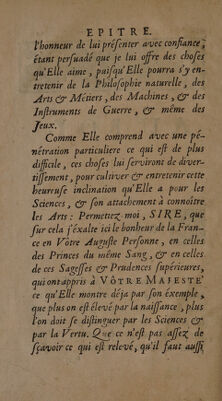 EPITRE.
l'honneur de lui présenter avec confiance,
étant persuadé que je lui offre des choses
qu'Elle aime, puisqu'Elle pourra s'y en-
tretenir de la Philosophie naturelle, des
Arts & Métiers, des Machines, & des
Instruments de Guerre, & même des
Jeux.
Comme Elle comprend avec une pé-
nétration particuliere ce qui est de plus
difficile, ces choses lui serviront de diver-
tissement, pour cultiver & entretenir cette
heureuse inclination qu'Elle a pour les
Sciences, & son attachement à connoitre
les Arts: Permettez moi, SIRE, que
sur cela j'éxalte ici le bonheur de la Fran-
ce en Vôtre Auguste Personne, en celles
des Princes du même Sang, & en celles
de ces Sagesses & Prudences supérieures,
qui ont appris à VÔTRE MAJESTÉ
ce qu'Elle montre déja par son éxemple,
que plus on est élevé par la naissance, plus
l'on doit se distinguer par les Sciences &
par la Vertu. Que ce n'est pas assez de
sçavoir ce qui est relevé, qu'il faut aussi